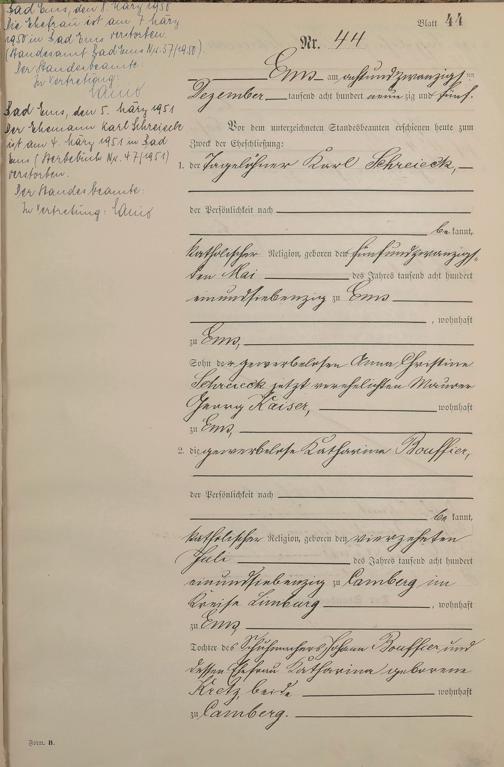 Bad Ems, den 8. März 1950
Die Ehefrau ist am 7. März
1950 in Bad Ems verstorben.
(Standesamt Bad Ems Nr. 57/1950)
Der Standesbeamte
In Vertretung:
Bad Ems, den 5. März 1951
Der Ehemann Karl Schreieck
ist am 4. März 1951 in Bad
Ems (Sterbebuch Nr. 47/1951)
verstorben.
Der Standesbeamte:
In Vertretung:
Blatt 44
Nr. 44
Ems am achtundzwanzigsten
Dezember tausend acht hundert neunzig und fünf.
Vor dem unterzeichneten Standesbeamten erschienen heute zum
Zweck der Eheschließung:
1. der Tagelöhner Karl Schreieck,
der Persönlichkeit nach
bekannt,
katholischer Religion, geboren den fünfundzwanzigs-
ten Mai des Jahres tausend acht hundert
einundsiebenzig zu Ems
, wohnhaft
zu Ems,
Sohn der gewerbelosen Anna Christine
Schreieck jetzt verehelichten Maurer
Georg Kaiser, wohnhaft
zu Ems,
2. die gewerbelose Katharina Bouffier,
der Persönlichkeit nach
bekannt,
katholischer Religion, geboren den vierzehnten
Juli des Jahres tausend acht hundert
einundsiebenzig zu Camberg im
Kreise Limburg , wohnhaft
zu Ems,
Tochter des Schuhmachers Johann Bouffier und
dessen Ehefrau Katharina geborene
Kretz, beide wohnhaft
zu Camberg.
Form. B.